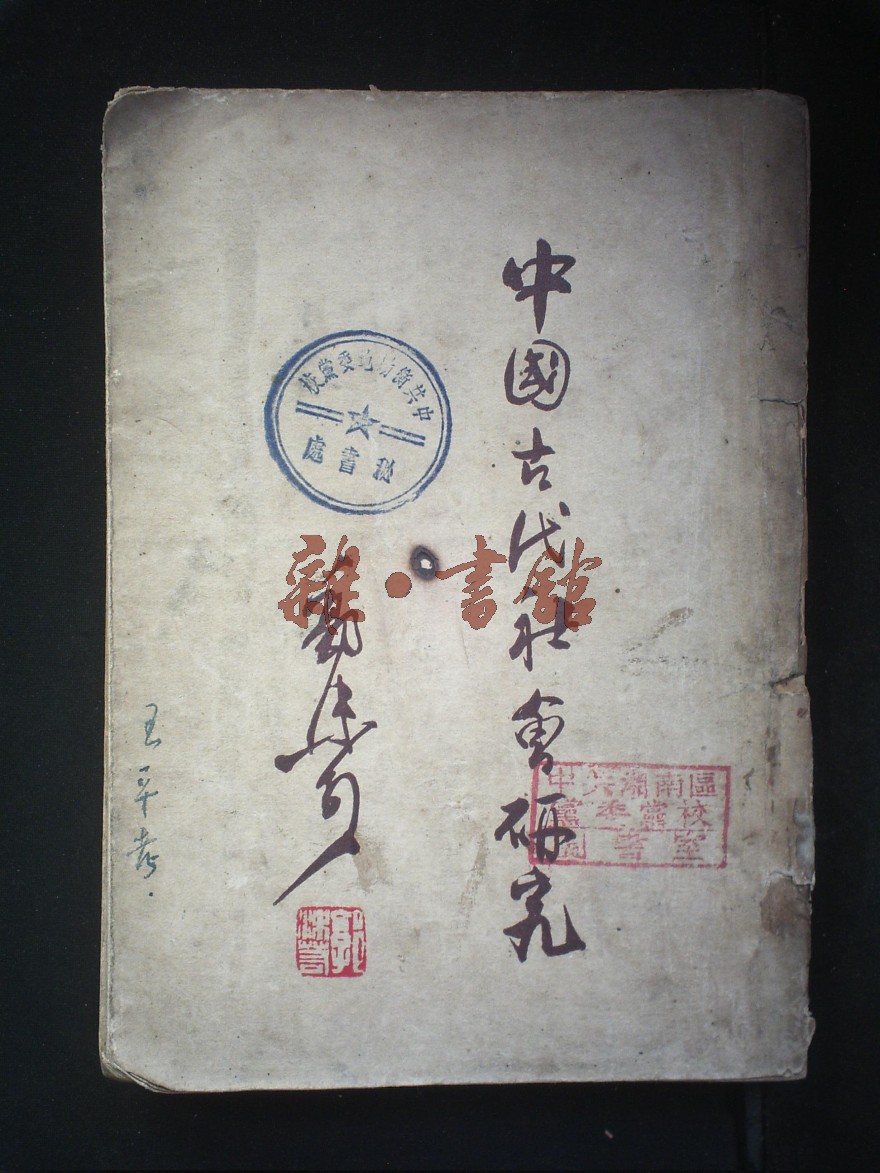 中國古代社會研究
郭沫若
郭沫若
中共衡陽地委黨校
秘書處
雜·書館
中共湖南區
黨委黨校
圖書室